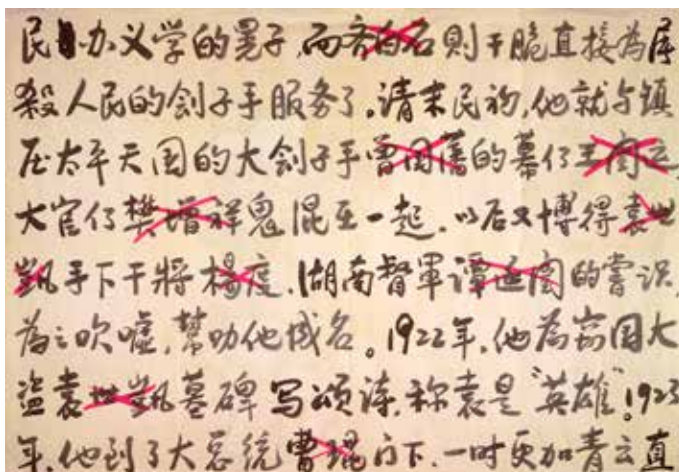 民办义学的晃子,而齐白石则干脆直接為屠
殺人民的刽子手服务了。请末民初,他就与镇
压太平天国的大刽子手曾国藩的幕仔王闿运,
大官仔樊增祥鬼混在一起.以后又博得袁世
凯手下干將楊度.湖南督軍谭延闿的嘗识,
為之吹嘘,幫助他成名。1922年.他為窃国大
盗袁世凯墓碑写颂诗.称袁是"英雄"!1923
年.他到了大总统曹琨门下.一时更加青云直